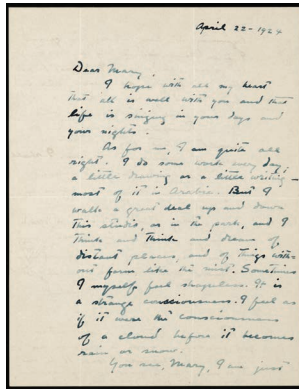 April 22-1924
Dear Mary,
I hope with all my heart
that all is well with you and that
life is singing in your days and
your nights.
As for me, I am quite all
right. I do some work every day,
a little drawing or a little writing —
most of it in Arabic. But I
walk a great deal up and down
this studio, or in the park, and I
think and think and dream of
distant places, and of things with-
out form like the mist. Sometimes
I myself feel shapeless. It is
a strange consciousness. I feel as
if it were the consciousness
of a cloud before it becomes
rain or snow.
You see, Mary, I am just